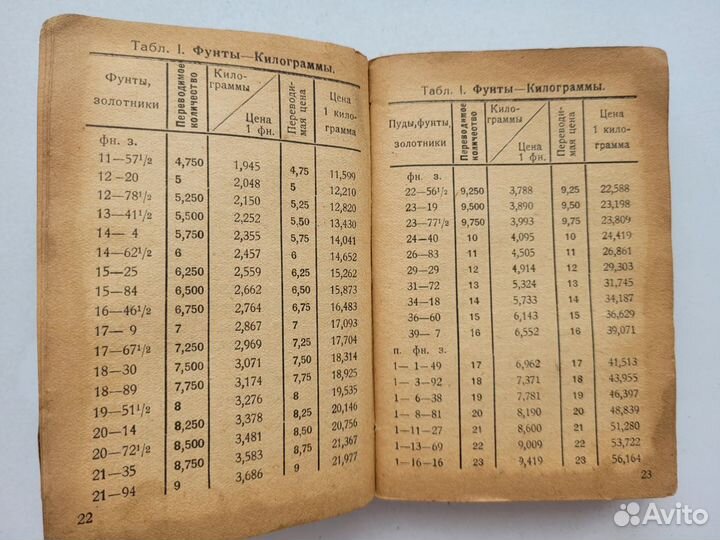 Табл. I. Фунты—Килограммы.
Фунты, золотники
Переводимое количество
Кило-
граммы
Цена
1 фн.
Переводи-
мая цена
Цена
1 кило-
грамма
фн. з.
11—57 1/2 4,750 1,945 4,75 11,599
12—20 5 2,048 5 12,210
12—78 1/2 5,250 2,150 5,25 12,820
13—41 1/2 5,500 2,252 5,50 13,430
14— 4 5,750 2,355 5,75 14,041
14—62 1/2 6 2,457 6 14,652
15—25 6,250 2,559 6,25 15,262
15—84 6,500 2,662 6,50 15,873
16—46 1/2 6,750 2,764 6,75 16,483
17— 9 7 2,867 7 17,093
17—67 1/2 7,250 2,969 7,25 17,704
18—30 7,500 3,071 7,50 18,314
18—89 7,750 3,174 7,75 18,925
19—51 1/2 8 3,276 8 19,535
20—14 8,250 3,378 8,25 20,146
20—72 1/2 8,500 3,481 8,50 20,756
21—35 8,750 3,583 8,75 21,367
21—94 9 3,686 9 21,977
22
Табл. I. Фунты—Килограммы.
Пуды, фунты,
золотники
Переводимое количество
Кило-
граммы
Цена
1 фн.
Переводи-
мая цена
Цена
1 кило-
грамма
фн. з.
22—56 1/2 9,250 3,788 9,25 22,588
23—19 9,500 3,890 9,50 23,198
23—77 1/2 9,750 3,993 9,75 23,809
24—40 10 4,095 10 24,419
26—83 11 4,505 11 26,861
29—29 12 4,914 12 29,303
31—72 13 5,324 13 31,745
34—18 14 5,733 14 34,187
36—60 15 6,143 15 36,629
39— 7 16 6,552 16 39,071
п. фн. з.
1— 1—49 17 6,962 17 41,513
1— 3—92 18 7,371 18 43,955
1— 6—38 19 7,781 19 46,397
1— 8—81 20 8,190 20 48,839
1—11—27 21 8,600 21 51,280
1—13—69 22 9,009 22 53,722
1—16—16 23 9,419 23 56,164
23
Avito